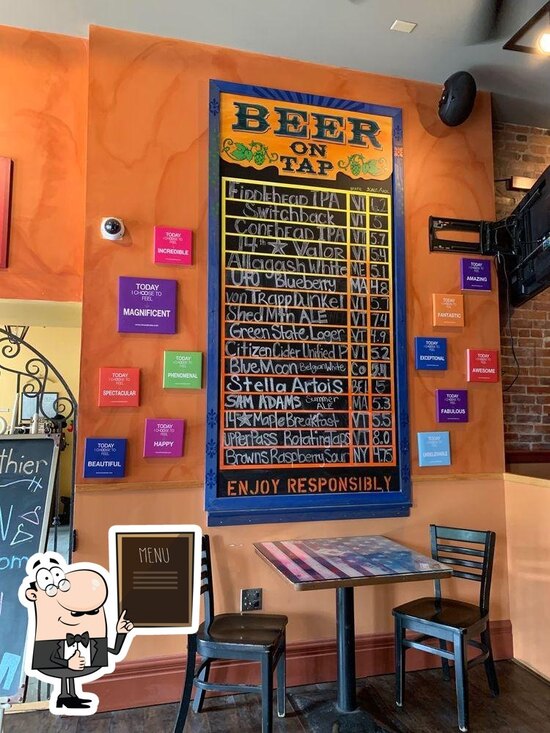 BEER
ON
TAP
STATE %ALC
Fiddlehead IPA VT
Switchback VT
Conehead IPA VT 5.7
14th ★ Valor VT 5.4
Allagash White ME 5.1
UFO Blueberry MA 4.8
von Trapp Dunkel VT 5.7
Shed Mtn ALE VT 7.4
Green State Lager VT 4.9
Citizen Cider Unified P VT 5.2
Blue Moon Belgian White CO 5.4
Stella Artois BEL 5
SAM ADAMS Summer ALE MA 5.3
14★Maple Breakfast VT 5.5
upper Pass Rotating Taps VT 8.0
Browns Raspberry Sour NY 4.75
ENJOY RESPONSIBLY
TODAY
I CHOOSE TO
FEEL
INCREDIBLE
TODAY
I CHOOSE TO
FEEL
MAGNIFICENT
TODAY
I CHOOSE TO
FEEL
PHENOMENAL
TODAY
I CHOOSE TO
FEEL
SPECTACULAR
TODAY
I CHOOSE TO
FEEL
HAPPY
TODAY
I CHOOSE TO
FEEL
BEAUTIFUL
TODAY
I CHOOSE TO
FEEL
AMAZING
TODAY
I CHOOSE TO
FEEL
FANTASTIC
TODAY
I CHOOSE TO
FEEL
EXCEPTIONAL
TODAY
I CHOOSE TO
FEEL
AWESOME
TODAY
I CHOOSE TO
FEEL
FABULOUS
TODAY
I CHOOSE TO
FEEL
UNBELIEVABLE
thier
MENU